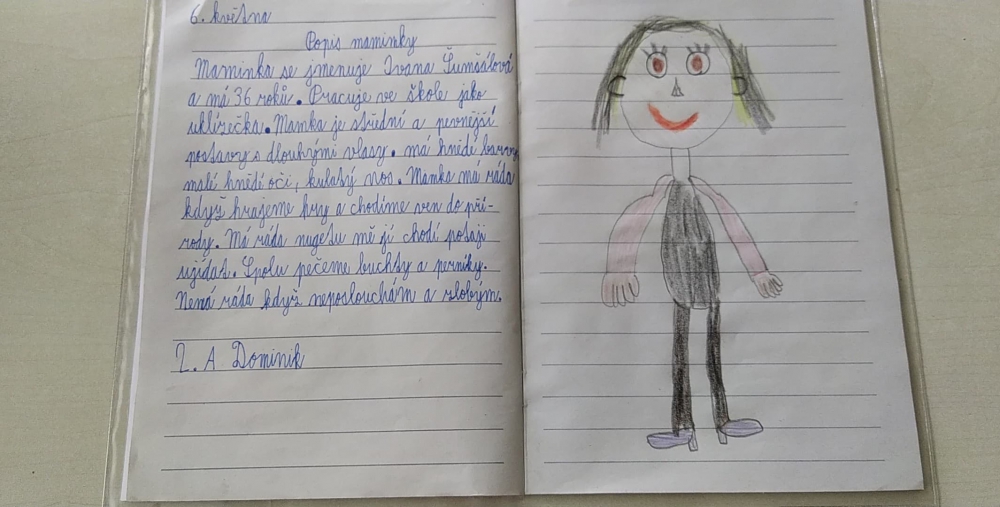 6. května
Popis maminky
Maminka se jmenuje Ivana Šumšálová
a má 36 roků. Pracuje ve škole jako
uklízečka. Mamka je střední a pevnější
postavy s dlouhými vlasy. má hnědé barvy
malé hnědé oči, kulatý nos. Mamka má ráda
když hrajeme hry a chodíme ven do pří-
rody. Má ráda nugetu mě jí chodí potaji
ujídat. Spolu pečeme buchty a perníky.
Nemá ráda když neposlouchám a zlobým.
2. A Dominik